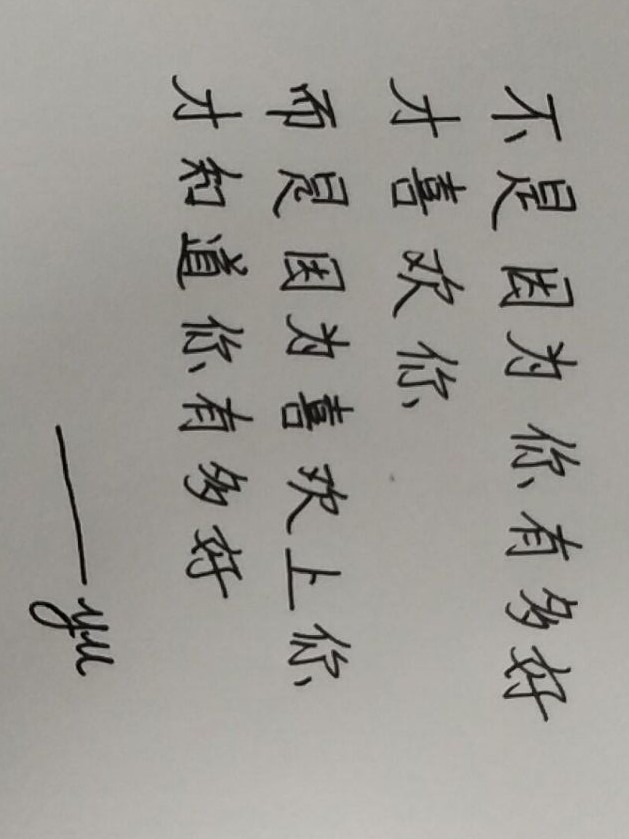 不是因为你有多好
才喜欢你
而是因为喜欢上你
才知道你有多好
——yu